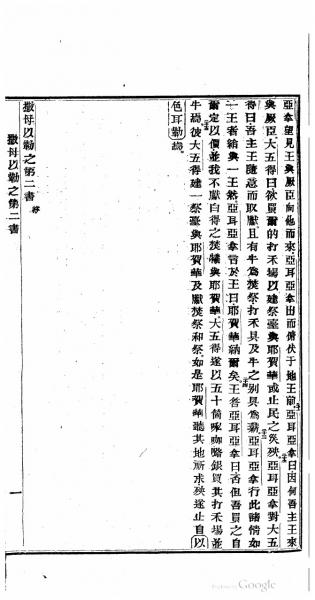 亞拿望見王與厥臣向他而來亞耳亞拿出而俯伏于地王前亞耳亞拿曰因何吾主王來
與厥臣大五得曰欲買爾的打禾場以建祭臺與耶賀華或止民之災殃亞耳亞拿對大五
得曰吾主王隨意而取獻且有牛為焚祭打禾具及牛之別具為薪亞耳亞拿行此諸情如
一王者給與一王然亞耳亞拿言於王曰耶賀華納爾矣王答亞耳亞拿曰否但吾買之自
爾定以價並我不獻白得之焚犧與耶賀華大五得遂以五十個咊咯銀買其打禾場並
牛焉彼大五得建一祭臺與耶賀華及獻焚祭和祭如是耶賀華聽其地所求殃遂止自以
色耳勒焉
撒母以勒之第二書 終
撒母以勒之第二書
一
Google